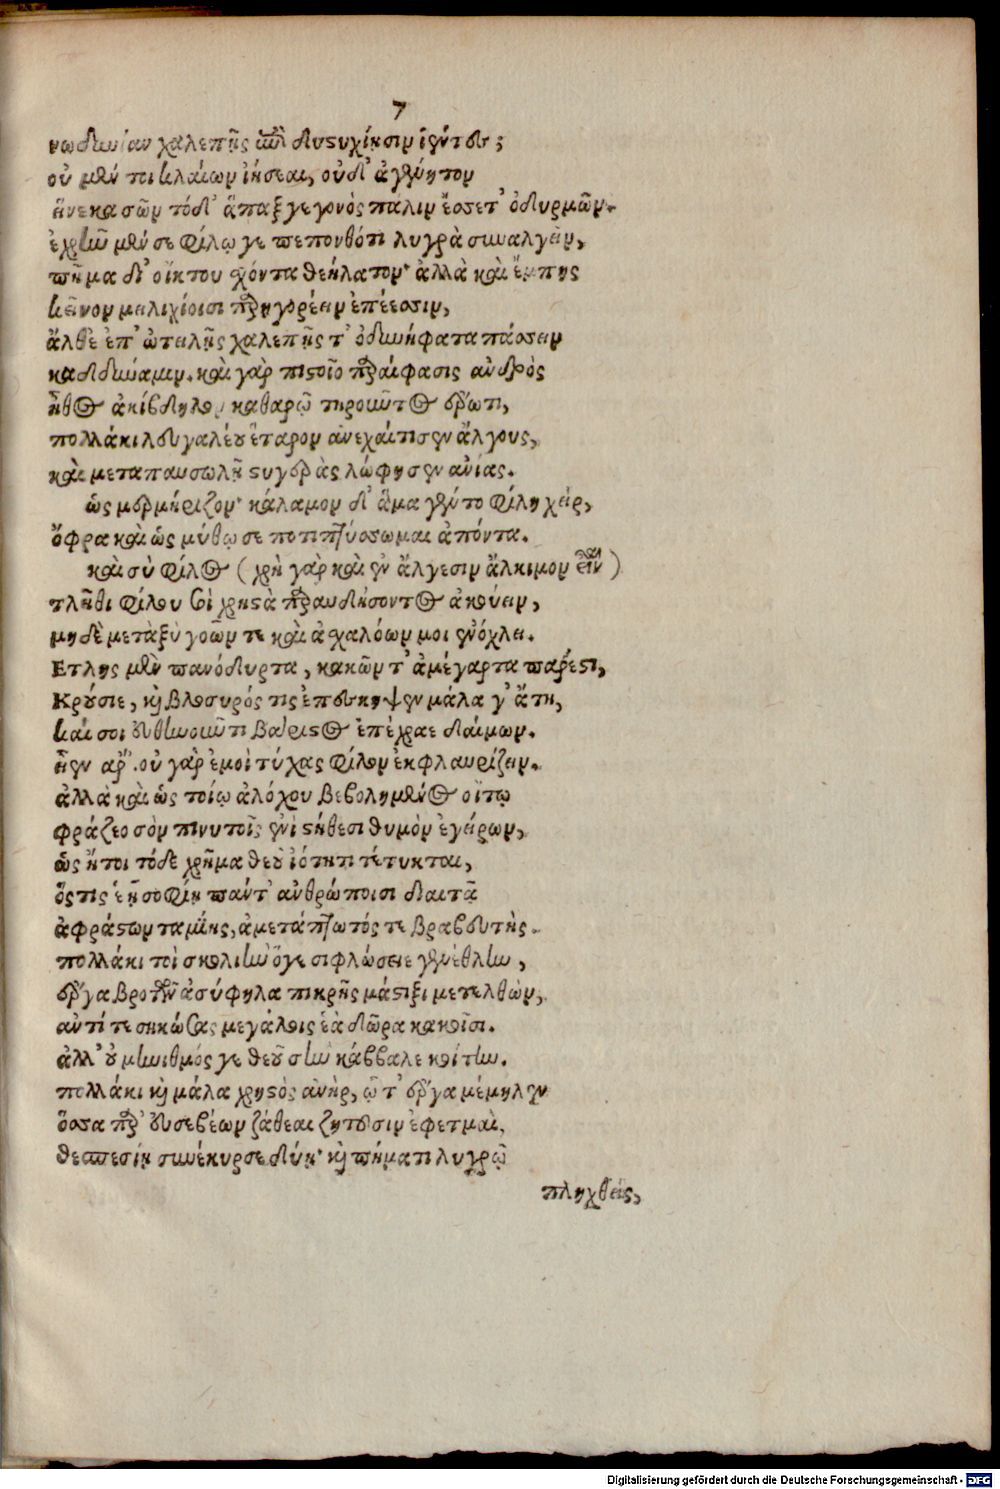 7
νωδυνίαν χαλεπῆς ἐπὶ δυστυχίῃσιν ἰέντες;
οὐ μέν τοι κλαίων ἰήσεαι, οὐδ' ἀγένητον
εἵνεκα σῶν τόδ' ἅπαξ γεγονὸς πάλιν ἔσσετ' ὀδυρμῶν.
ἐχρῆν μέν σε φίλῳ γε πεπονθότι λυγρὰ συναλγεῖν,
πῆμα δ' οἴκτου ἔχοντα θεήλατον· ἀλλὰ καὶ ἔμπης
κεῖνον μειλιχίοισι παρηγορέειν ἐπέεσσιν,
ἄλθε' ἐπ' ὠτειλῆς χαλεπῆς τ' ὀδυνήφατα πάσσειν
καδδύναμιν. καὶ γὰρ πιστοῖο παραίφασις ἀνδρὸς
ἦθος ἀκίβδηλον καθαρῷ τηροῦντος ἔρωτι,
πολλάκι λευγαλέου ἕταρον ἀνεχαίτισεν ἄλγους,
καὶ μεταπαυσωλῇ στυγερὰς λώφησεν ἀνίας.
ὣς μερμήριζον· κάλαμον δ' ἅμα γέντο φίλη χείρ,
ὄφρα καὶ ὣς μύθῳ σε ποτιπτύσσωμαι ἀπόντα.
καὶ σὺ φίλος (χρὴ γὰρ καὶ ἐν ἄλγεσιν ἄλκιμον εἶναι)
τλῆθι φίλου σοὶ χρηστὰ παραυδήσοντος ἀκούειν,
μηδὲ μεταξὺ γοῶν τε καὶ ἀσχαλόων μοι ἐνόχλει.
Ετλης μὲν πανόδυρτα, κακῶν τ' ἀμέγαρτα πάρεστι,
Κρούσιε, καὶ βλοσυρός τις ἐπέσκηψεν μάλα γ' ἄτη,
καί σοι εὐθυνοῦντι βάριστος ἐπέχραε δαίμων.
εἶεν ἄρ'. οὐ γὰρ ἐμοὶ τύχας φίλον ἐκφλαυρίζειν.
ἀλλὰ καὶ ὣς τοίῳ ἀλόχου βεβολημένος οἴτῳ
φράζεο σὸν πινυτοῖς ἐνὶ στήθεσι θυμὸν ἐγείρων,
ὡς ἤτοι τόδε χρῆμα θεοῦ ἰότητι τέτυκται,
ὅς τις ἑῇ σοφίῃ πάντ' ἀνθρώποισι διαιτᾷ
ἀφράστων ταμίης, ἀμετάπτωτός τε βραβευτής.
πολλάκι τοὶ σκολιὴν ὅγε σιφλώσειε γενέθλην,
ἔργα βροτῶν ἀσύφηλα πικρῆς μάστιξι μετελθών,
ἀντί τε σηκώσας μεγάλοις ἑὰ δῶρα κακοῖσι.
ἀλλ' οὐ μινυθμός γε θεοῦ σὴν κάββαλε κοίτην.
πολλάκι καὶ μάλα χρηστὸς ἀνήρ, ᾧ τ' ἔργα μέμηλεν
ὅσσα παρ' εὐσεβέων ζάθεαι ζητοῦσιν ἐφετμαί,
θεσπεσίῃ συνέκυρσε δύῃ· καὶ πήματι λυγρῷ
πληχθείς,
Digitalisierung gefördert durch die Deutsche Forschungsgemeinschaft - DFG